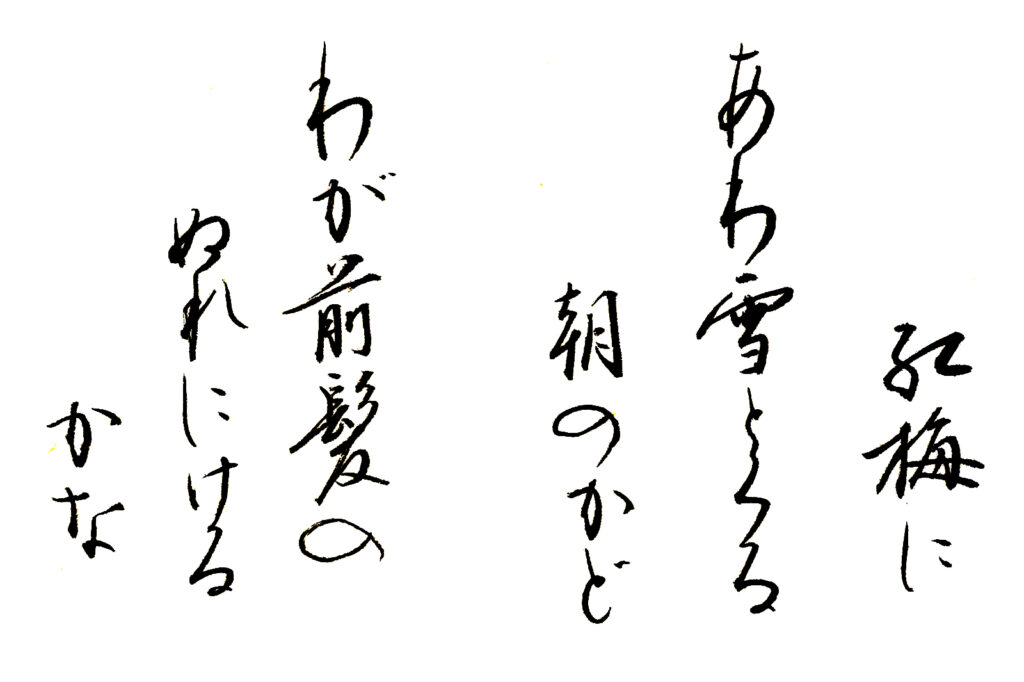 紅梅に
あわ雪とくる
朝のかど
わが前髪の
ぬれにける
かな